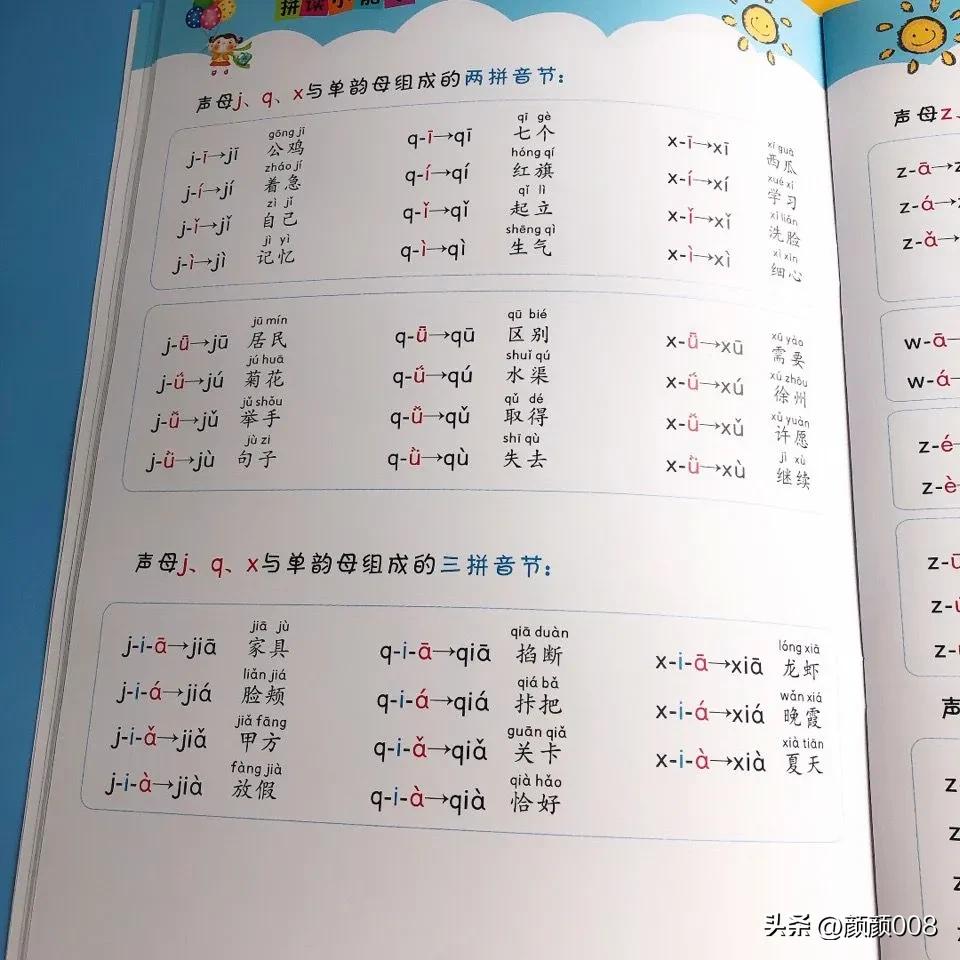 拼读小能
声母j、q、x与单韵母组成的两拼音节：
j-ī→jī gōng jī 公鸡
j-í→jí zháo jí 着急
j-ǐ→jǐ zì jǐ 自己
j-ì→jì jì yì 记忆
q-ī→qī qī gè 七个
q-í→qí hóng qí 红旗
q-ǐ→qǐ qǐ lì 起立
q-ì→qì shēng qì 生气
x-ī→xī xī guā 西瓜
x-í→xí xué xí 学习
x-ǐ→xǐ xǐ liǎn 洗脸
x-ì→xì xì xīn 细心
j-ǖ→jū jū mín 居民
j-ǘ→jú jú huā 菊花
j-ǚ→jǔ jǔ shǒu 举手
j-ǜ→jù jù zi 句子
q-ǖ→qū qū bié 区别
q-ǘ→qú shuǐ qú 水渠
q-ǚ→qǔ qǔ dé 取得
q-ǜ→qù shī qù 失去
x-ǖ→xū xū yào 需要
x-ǘ→xú xú zhōu 徐州
x-ǚ→xǔ xǔ yuàn 许愿
x-ǜ→xù jì xù 继续
声母j、q、x与单韵母组成的三拼音节：
j-i-ā→jiā jiā jù 家具
j-i-á→jiá liǎn jiá 脸颊
j-i-ǎ→jiǎ jiǎ fāng 甲方
j-i-à→jià fàng jià 放假
q-i-ā→qiā qiā duàn 掐断
q-i-á→qiá qiá bǎ 拤把
q-i-ǎ→qiǎ guān qiǎ 关卡
q-i-à→qià qià hǎo 恰好
x-i-ā→xiā lóng xiā 龙虾
x-i-á→xiá wǎn xiá 晚霞
x-i-à→xià xià tiān 夏天
声母z、
z-ā→z
z-á→
z-ǎ→
w-ā→
w-á→
z-é→
z-è→
头条 @颜颜008